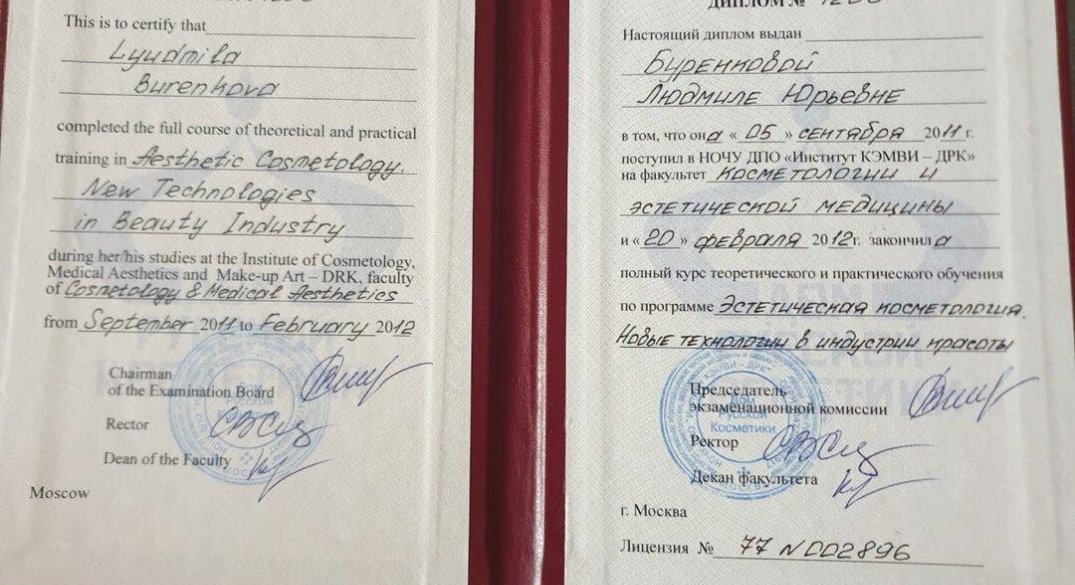 This is to certify that
Lyudmila
Burenkova
completed the full course of theoretical and practical
training in Aesthetic Cosmetology.
New Technologies
in Beauty Industry
during her/his studies at the Institute of Cosmetology,
Medical Aesthetics and Make-up Art – DRK, faculty
of Cosmetology & Medical Aesthetics
from September 2011 to February 2012
Chairman
of the Examination Board
Rector
Dean of the Faculty
Moscow
ДИПЛОМ №
Настоящий диплом выдан
Буренковой
Людмиле Юрьевне
в том, что она « 05 » сентября 2011 г.
поступил в НОЧУ ДПО «Институт КЭМВИ – ДРК»
на факультет косметологии и
эстетической медицины
и « 20 » февраля 2012г. закончила
полный курс теоретического и практического обучения
по программе Эстетическая косметология.
Новые технологии в индустрии красоты
Председатель
экзаменационной комиссии
Дом
Русской
Косметики
Ректор
Декан факультета
г. Москва
Лицензия № 77 N002896